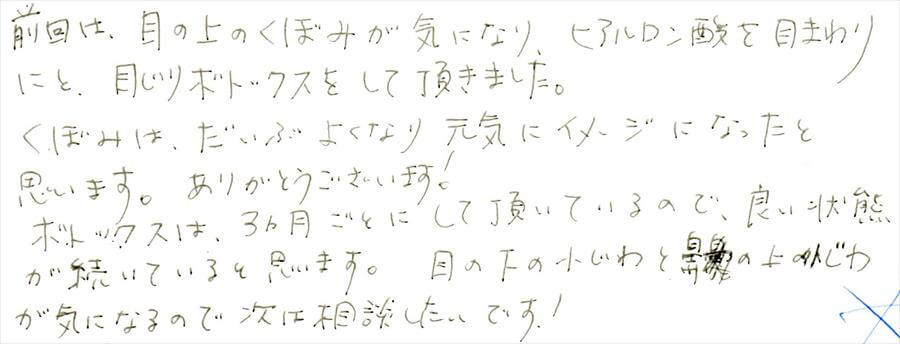 前回は、目の上のくぼみが気になり、ヒアルロン酸を目まわり
にと、目じりボトックスをして頂きました。
くぼみは、だいぶよくなり元気にイメージになったと
思います。ありがとうございます!
ボトックスは、3ヵ月ごとにして頂いているので、良い状態
が続いていると思います。目の下の小じわと鼻の上の小じわ
が気になるので次は相談したいです!